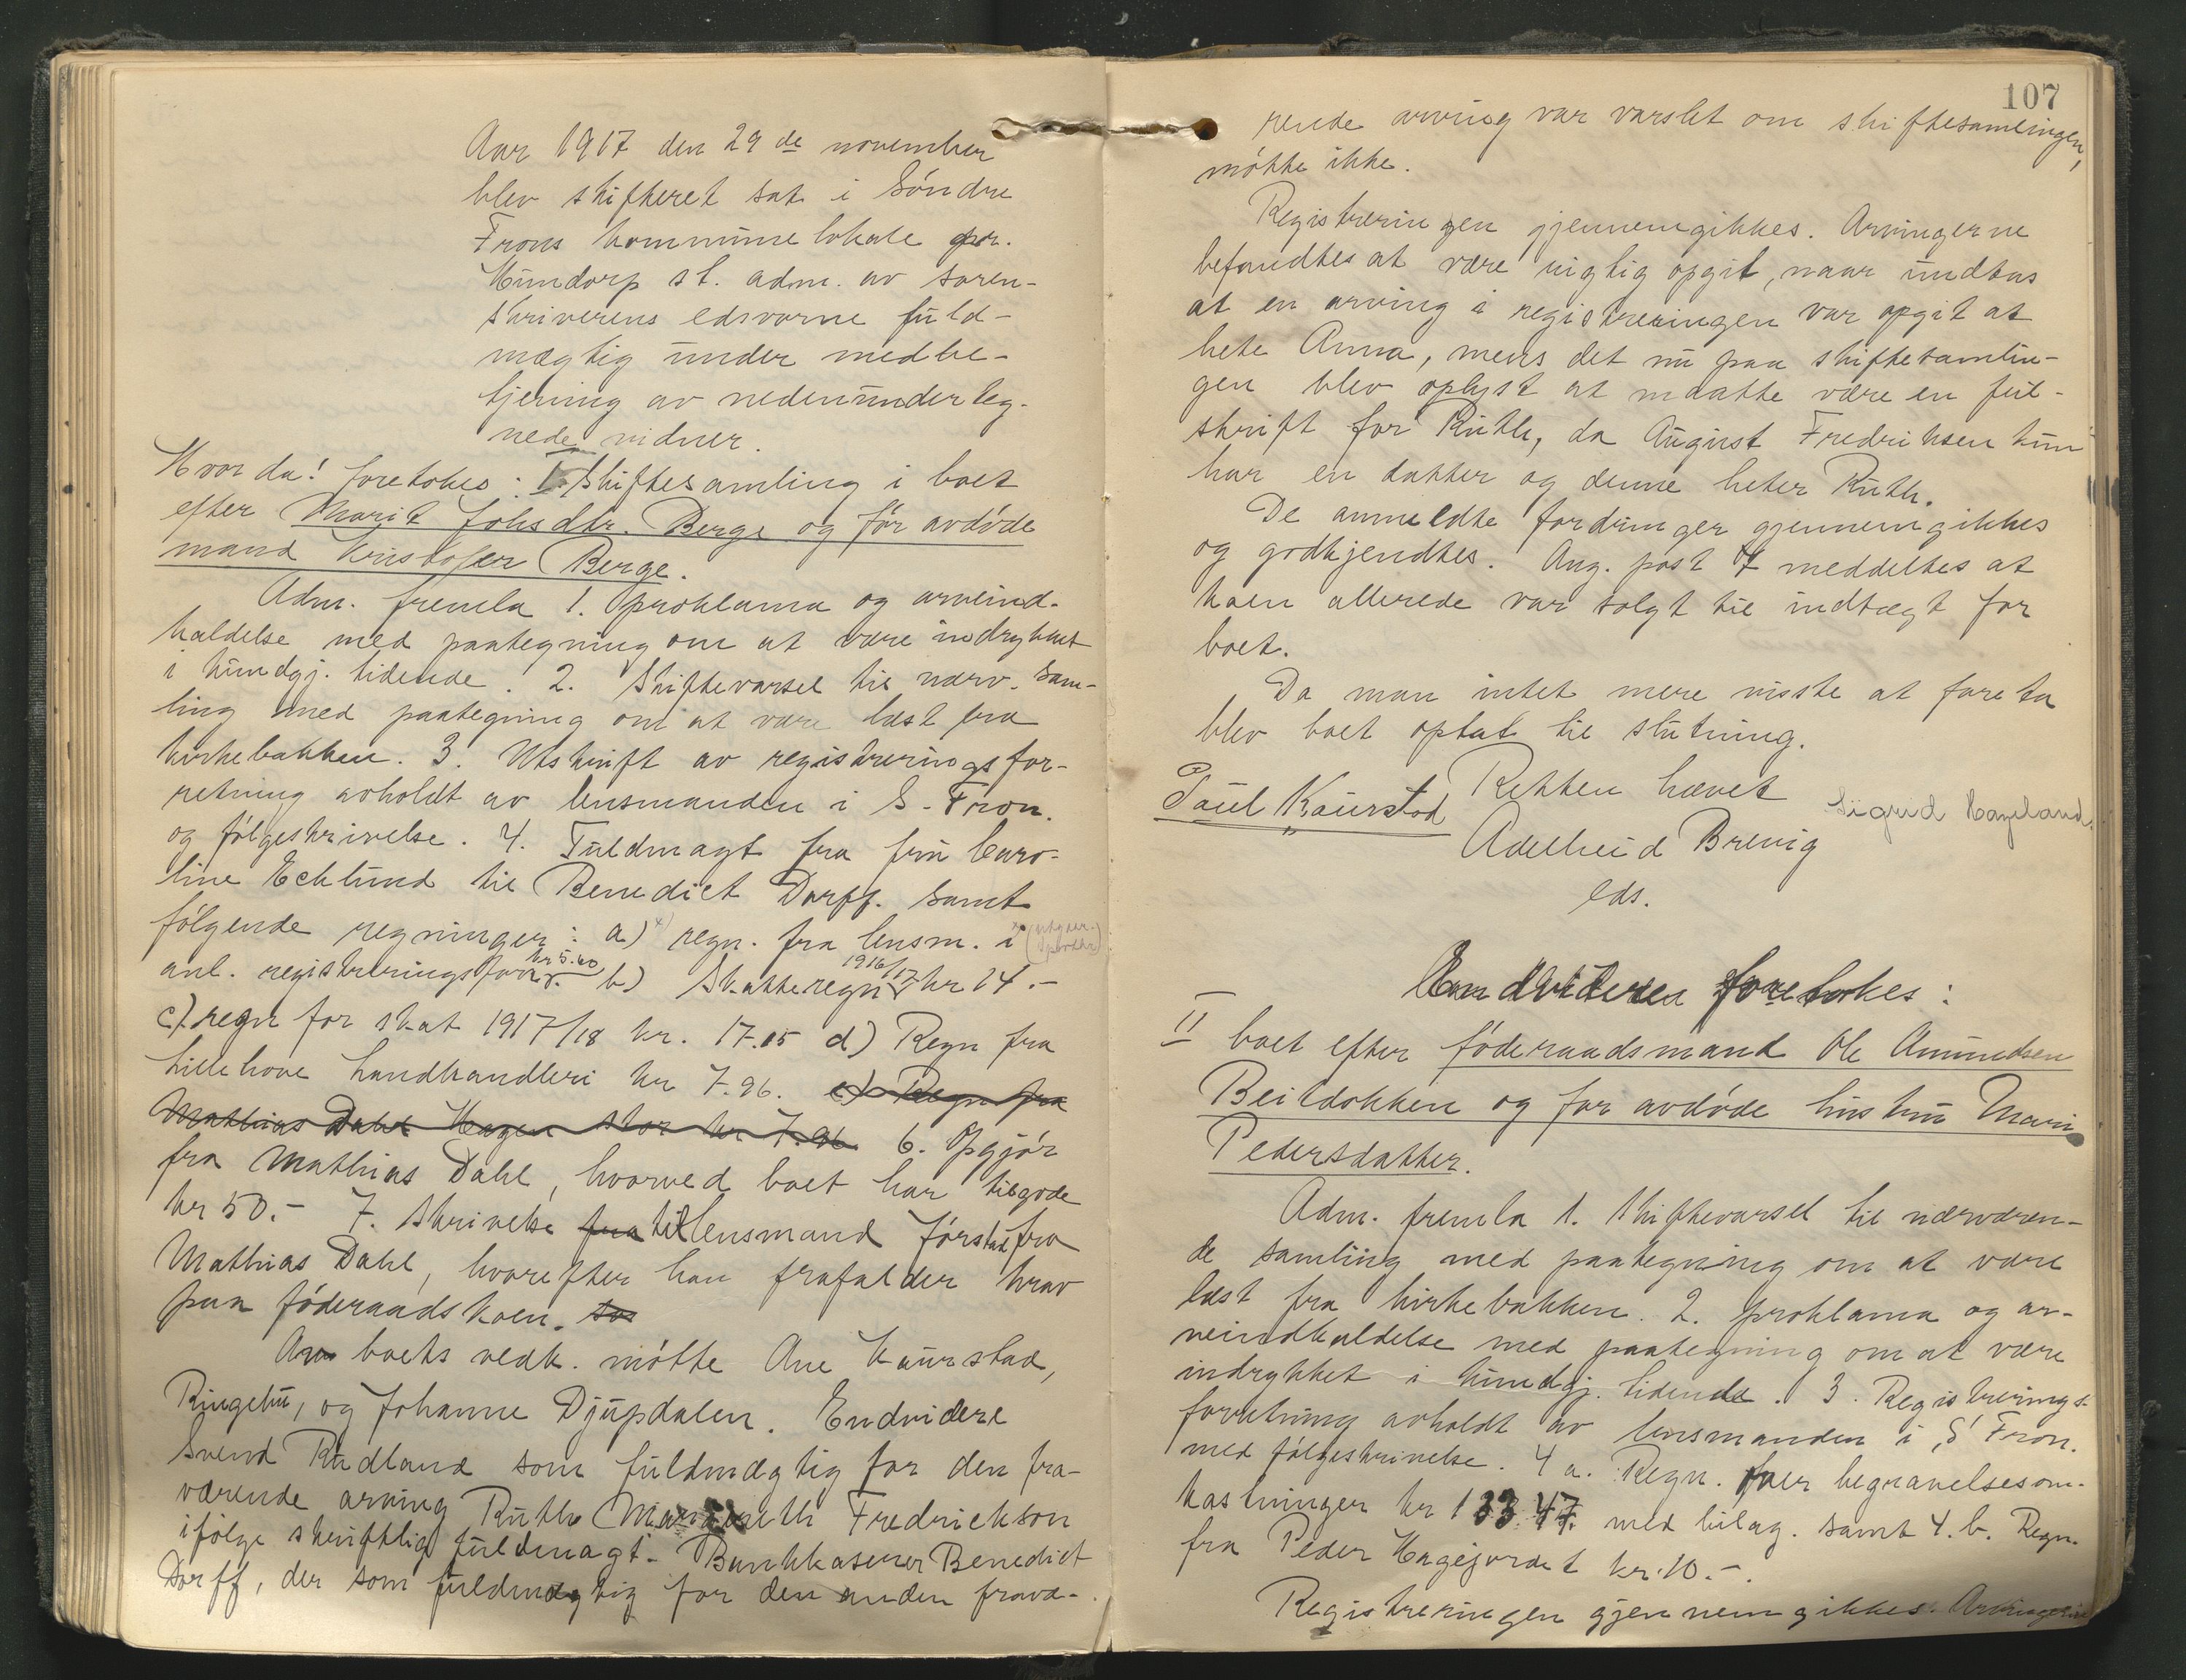 Aar 1917 den 29de november
blev skifteret sat i Søndre
Frons kommunelokale pr.
Hundorp st. adm. av soren-
skriverens edsvorne fuld-
mægtig under medbe-
tjening av nedenunderteg-
nede vidner.
Hvorda! foretokes: I. Skiftesamling i boet
efter Marit Johsdtr. Berge og før avdøde
mand Kristofer Berge.
Adm. fremla 1. proklama og arveind-
kaldelse med paategning om at være indrykket
i kundgj. tidende. 2. Skiftevarsel til nærv. sam-
ling med paategning om at være læst fra
kirkebakken. 3. Utskrift av registreringsfor-
retning avholdt av lensmanden i S. Fron.
og følgeskrivelse. 4. Fuldmagt fra fru Caro-
line Ecklund til Benedict Dorff. samt
følgende regninger: a) regn. fra lensm. i
anl. registreringsforr. kr 5.60 b) Skatteregn 1916/17 kr 14.-
c) regn for skat 1917/18 kr. 17.05 d) Regn fra
Lillehove Landhandleri kr 7.96. e) Regn fra
Mathias Dahl Hagen stor kr 7.96 6. Opgjør
fra Mathias Dahl, hvorved boet har tilgode
kr 50.- 7. Skrivelse fra til lensmand Jørstad fra
Mathias Dahl, hvorefter han frafalder krav
paa føderaadskoen.
An boets vedk. møtte Ane Kaurstad,
Ringebu, og Johanne Djupdalen. Endvidere
Svend Rudland som fuldmægtig for den fra-
værende arving Ruth Margareth Fredrickson
ifølge skriftlig fuldmagt. Bankkaserer Benedict
Dorff, der som fuldmægtig for den anden fravæ-
107
rende arving var varslet om skiftesamlingen,
møtte ikke.
Registreringen gjennemgikkes. Arvingerne
befandtes at være rigtig opgit, naar undtas
at en arving i registreringen var opgit at
hete Anna, mens det nu paa skiftesamlin-
gen blev oplyst at maatte være en feil-
skrift for Ruth, da August Fredriksen kun
har en datter og denne heter Ruth.
De anmeldte fordringer gjennemgikkes
og godkjendtes. Ang. post 7 meddeltes at
koen allerede var solgt til indtægt for
boet.
Da man intet mere visste at foreta
blev boet optat til slutning.
Retten hævet
Paul Kaurstad
Sigrid Hageland.
Adelheid Brevig
eds.
Endvidere foretokes:
II boet efter føderaadsmand Ole Amundsen
Beitdokken og før avdøde hustru Mari
Pedersdatter.
Adm. fremla 1. Skiftevarsel til nærværen-
de samling med paategning om at være
læst fra kirkebakken. 2. proklama og ar-
veindkaldelse med paategning om at være
indrykket i kundgj. tidende. 3. Registrerings-
forretning avholdt av lensmanden i S. Fron.
med følgeskrivelse. 4 a. Regn. over begravelsesom-
kostninger kr 133.47 med bilag. samt 4. b. Regn.
fra Peder Hagejordet kr. 10.-.
Registreringen gjennemgikkes. Arvingerne